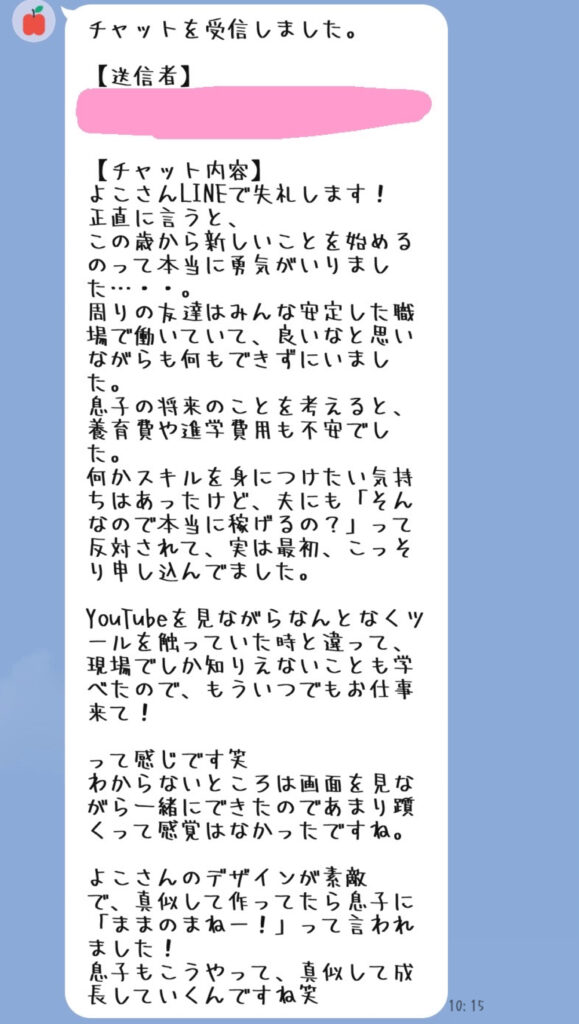 チャットを受信しました。
【送信者】
【チャット内容】
よこさんLINEで失礼します！
正直に言うと、
この歳から新しいことを始める
のって本当に勇気がいりまし
た…・・。
周りの友達はみんな安定した職
場で働いていて、良いなと思い
ながらも何もできずにいまし
た。
息子の将来のことを考えると、
養育費や進学費用も不安でし
た。
何かスキルを身につけたい気持
ちはあったけど、夫にも「そん
なので本当に稼げるの？」って
反対されて、実は最初、こっそ
り申し込んでました。
YouTubeを見ながらなんとなくツ
ールを触っていた時と違って、
現場でしか知りえないことも学
べたので、もういつでもお仕事
来て！
って感じです笑
わからないところは画面を見な
がら一緒にできたのであまり躓
くって感覚はなかったですね。
よこさんのデザインが素敵
で、真似して作ってたら息子に
「ままのまねー！」って言われ
ました！
息子もこうやって、真似して成
長していくんですね笑
10:15